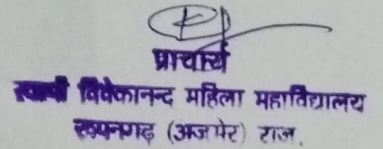 प्राचार्य
स्वामी विवेकानन्द महिला महाविद्यालय
रूपनगढ़ (अजमेर) राज.